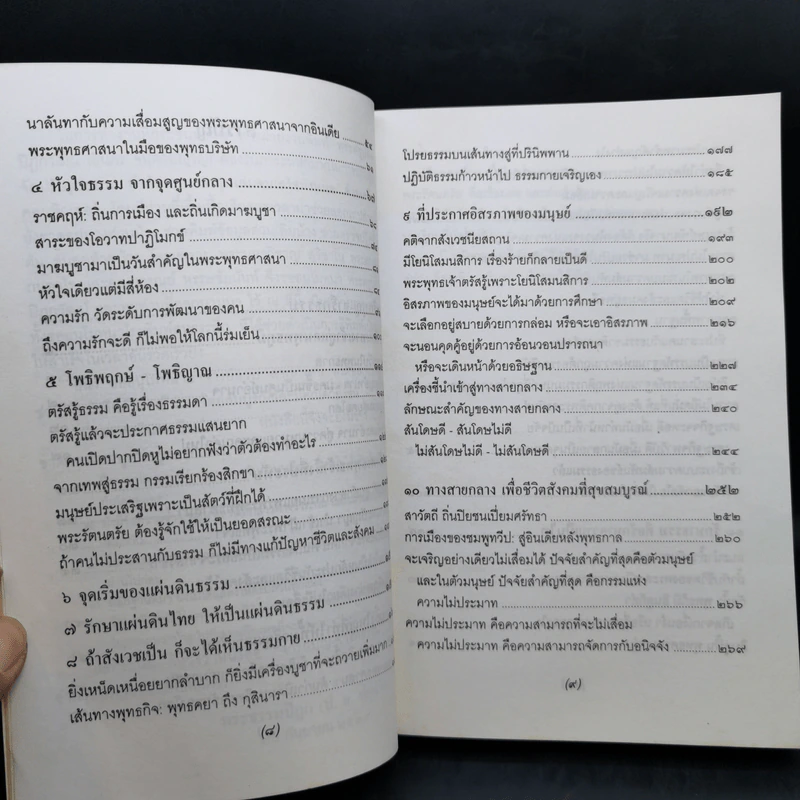 นาลันทากับความเสื่อมสูญของพระพุทธศาสนาจากอินเดีย ๕๔
พระพุทธศาสนาในมือของพุทธบริษัท ๖๑
๔ หัวใจธรรม จากจุดศูนย์กลาง
ราชคฤห์: ถิ่นการเมือง และถิ่นเกิดมาฆบูชา
สาระของโอวาทปาฏิโมกข์
มาฆบูชามาเป็นวันสำคัญในพระพุทธศาสนา
หัวใจเดียวแต่มีสี่ห้อง
ความรัก วัดระดับการพัฒนาของคน
ถึงความรักจะดี ก็ไม่พอให้โลกนี้ร่มเย็น
๕ โพธิพฤกษ์ - โพธิญาณ
ตรัสรู้ธรรม คือรู้เรื่องธรรมดา
ตรัสรู้แล้วจะประกาศธรรมแสนยาก
คนเปิดปากปิดหูไม่อยากฟังว่าตัวต้องทำอะไร
จากเทพสู่ธรรม กรรมเรียกร้องสิกขา
มนุษย์ประเสริฐเพราะเป็นสัตว์ที่ฝึกได้
พระรัตนตรัย ต้องรู้จักใช้ให้เป็นยอดสรณะ
ถ้าคนไม่ประสานกับธรรม ก็ไม่มีทางแก้ปัญหาชีวิตและสังคม
๖ จุดเริ่มของแผ่นดินธรรม
๗ รักษาแผ่นดินไทย ให้เป็นแผ่นดินธรรม
๘ ถ้าสังเวชเป็น ก็จะได้เห็นธรรมกาย
ยิ่งเหน็ดเหนื่อยยากลำบาก ก็ยิ่งมีเครื่องบูชาที่จะถวายเพิ่มมาก
เส้นทางพุทธกิจ: พุทธคยา ถึง กุสินารา
(๘)
โปรยธรรมบนเส้นทางสู่ที่ปรินิพพาน ๑๗๗
ปฏิบัติธรรมก้าวหน้าไป ธรรมกายเจริญเอง ๑๘๕
๙ ที่ประกาศอิสรภาพของมนุษย์ ๑๙๒
คติจากสังเวชนียสถาน ๑๙๓
มีโยนิโสมนสิการ เรื่องร้ายก็กลายเป็นดี ๒๐๐
พระพุทธเจ้าตรัสรู้เพราะโยนิโสมนสิการ ๒๐๒
อิสรภาพของมนุษย์จะได้มาด้วยการศึกษา ๒๐๙
จะเลือกอยู่สบายด้วยการกล่อม หรือจะเอาอิสรภาพ ๒๑๖
จะนอนคุดคู้อยู่ด้วยการอ้อนวอนปรารถนา
หรือจะเดินหน้าด้วยอธิษฐาน ๒๒๗
เครื่องชี้นำเข้าสู่ทางสายกลาง ๒๓๔
ลักษณะสำคัญของทางสายกลาง ๒๔๐
สันโดษดี - สันโดษไม่ดี
ไม่สันโดษไม่ดี - ไม่สันโดษดี ๒๔๔
๑๐ ทางสายกลาง เพื่อชีวิตสังคมที่สุขสมบูรณ์ ๒๕๒
สาวัตถี ถิ่นปิยชนเปี่ยมศรัทธา ๒๕๒
การเมืองของชมพูทวีป: สู่อินเดียหลังพุทธกาล ๒๖๐
จะเจริญอย่างเดียวไม่เสื่อมได้ ปัจจัยสำคัญที่สุดคือตัวมนุษย์
และในตัวมนุษย์ ปัจจัยสำคัญที่สุด คือกรรมแห่ง
ความไม่ประมาท ๒๖๖
ความไม่ประมาท คือความสามารถที่จะไม่เสื่อม
ความไม่ประมาท คือความสามารถจัดการกับอนิจจัง ๒๖๙
(๙)